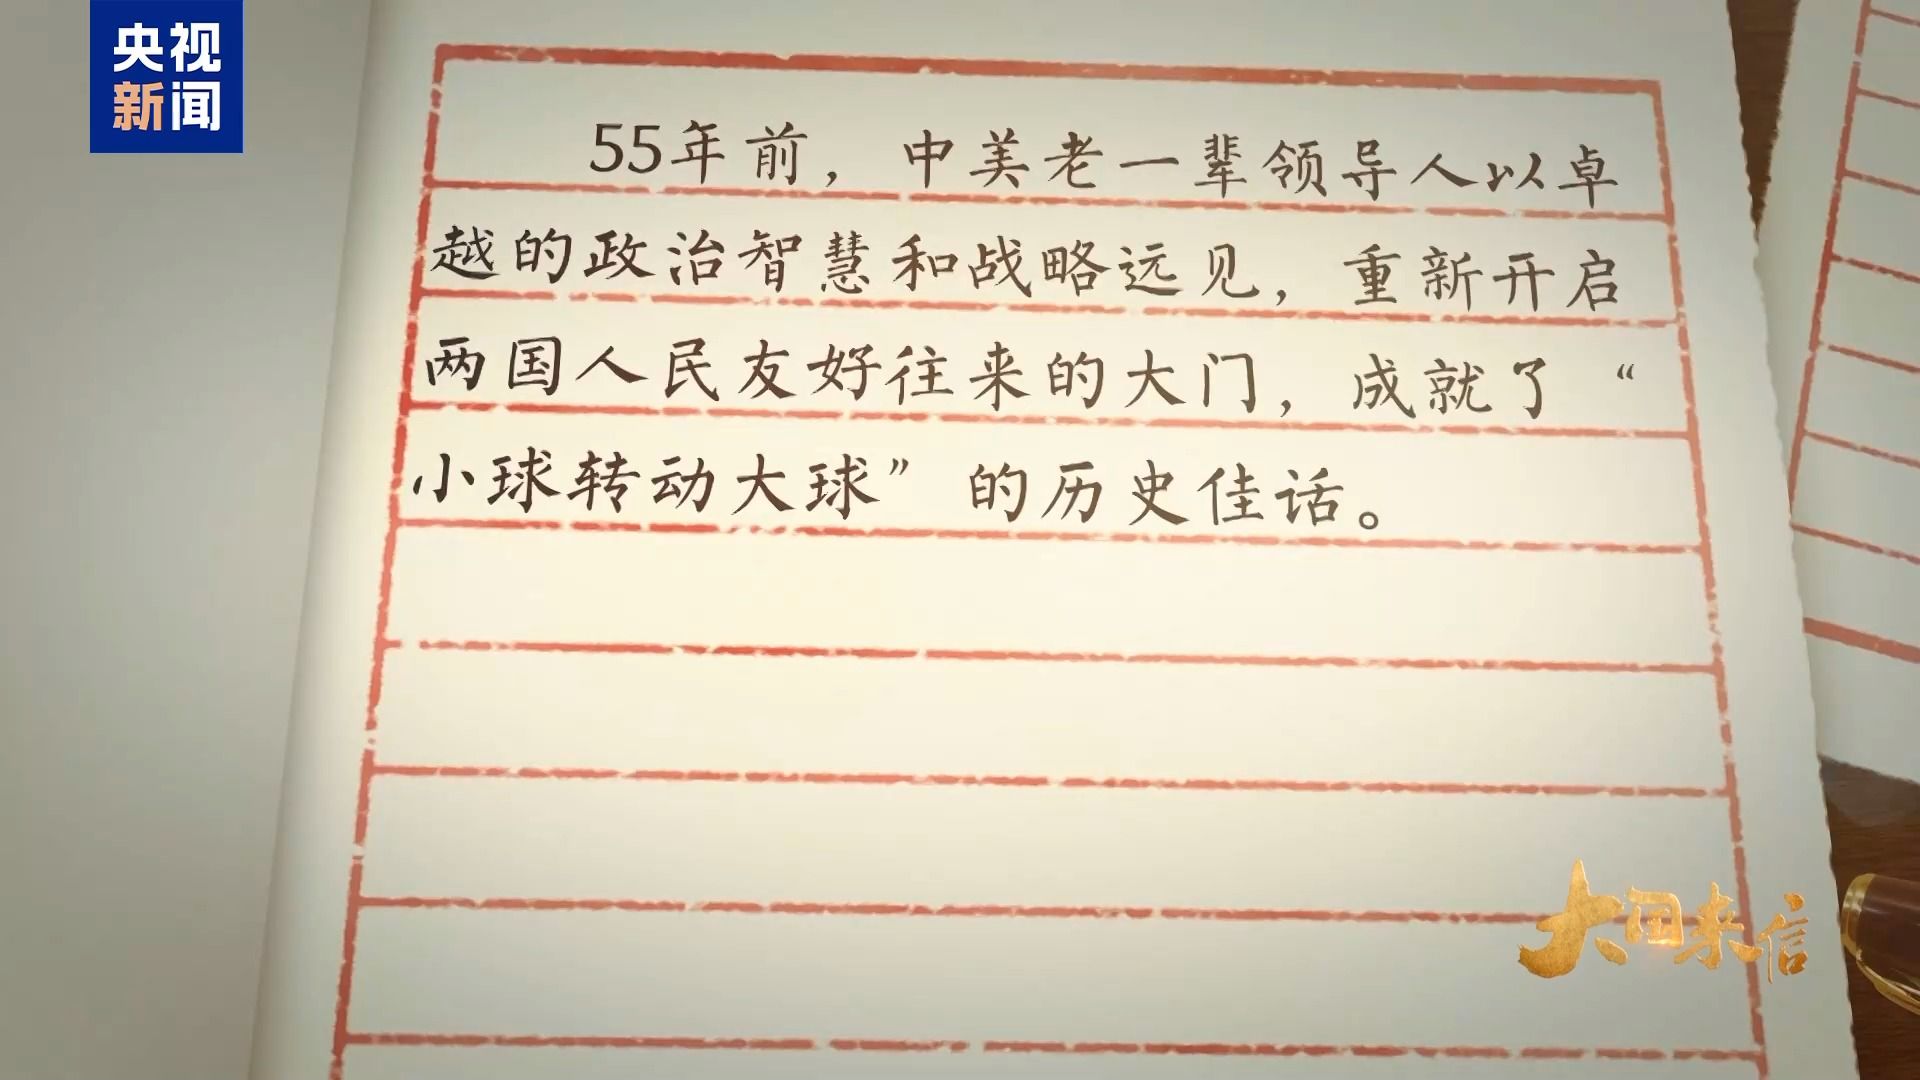 央视
新闻
55年前，中美老一辈领导人以卓
越的政治智慧和战略远见，重新开启
两国人民友好往来的大门，成就了“
小球转动大球”的历史佳话。
大国来信